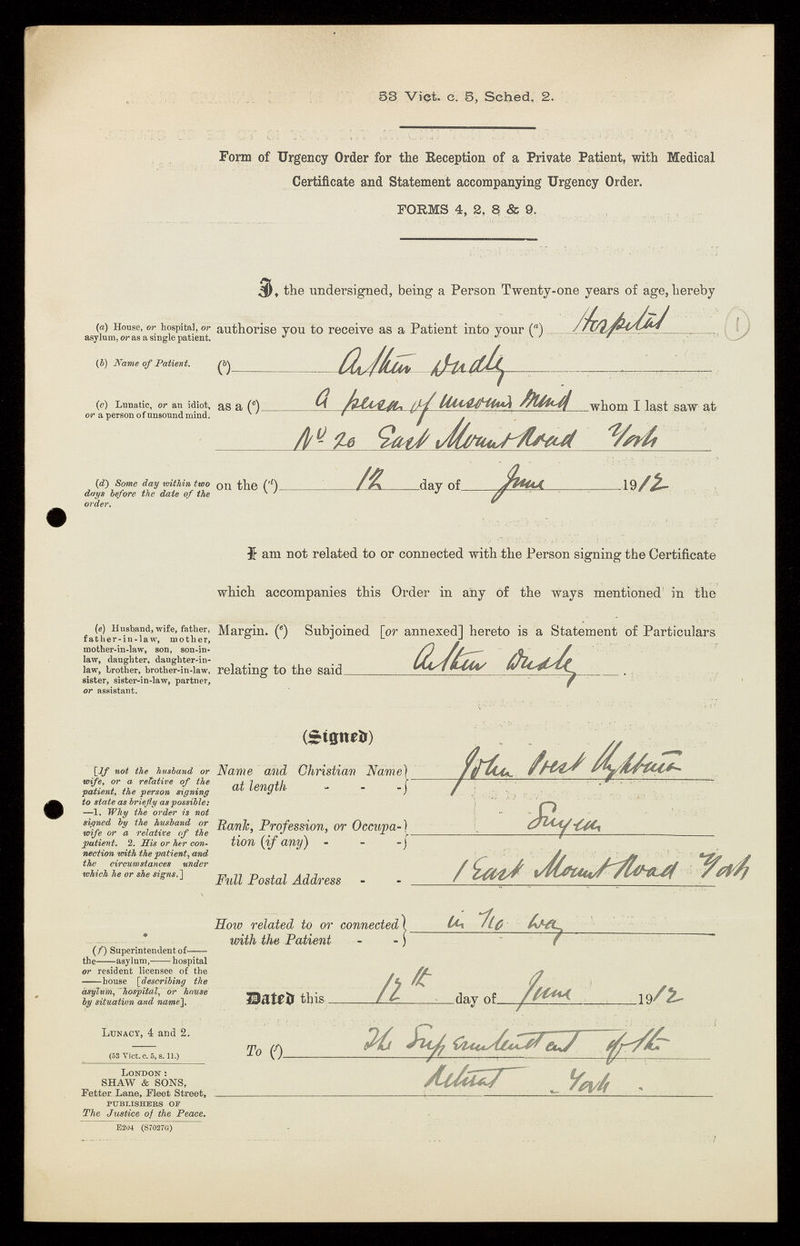 53 Vict. c. 5, Sched. 2.
Form of Urgency Order for the Reception of a Private Patient, with Medical
Certificate and Statement accompanying Urgency Order.
FORMS 4, 2, 8 & 9.
I, the undersigned, being a Person Twenty-one years of age, hereby
(a) House, or hospital, or
asylum, or as a single patient.
authorise you to receive as a Patient into your (a) Hospital (1)
(b) Name of Patient.
(b) Arthur Dudly
(c) Lunatic, or an idiot,
or a person of unsound mind.
as a (c) A person of Unsound Mind whom I last saw at
No 20 East Mount Road York
(d) Some day within two
days before the date of the
order.
on the (d) 12 day of June 1912
I am not related to or connected with the Person signing the Certificate
which accompanies this Order in any of the ways mentioned in the
(e) Husband, wife, father,
father-in-law, mother,
mother-in-law, son, son-in-
law, daughter, daughter-in-
law, brother, brother-in-law,
sister, sister-in-law, partner,
or assistant.
Margin. (e) Subjoined [or annexed] hereto is a Statement of Particulars
relating to the said Arthur Dudly .
(Signed)
[If not the husband or
wife, or a relative of the
patient, the person signing
to state as briefly as possible:
—1. Why the order is not
signed by the husband or
wife or a relative of the
patient. 2. His or her con-
nection with the patient, and
the circumstances under
which he or she signs.]
Name and Christian Name John
at length - - -
Rank, Profession, or Occupa-
tion (if any) - - - Surgeon
Full Postal Address - - 1 East Mount Road York
How related to or connected in no way
with the Patient - -
*
(f) Superintendent of——
the——asylum,——hospital
or resident licensee of the
——house [describing the
asylum, hospital, or house
by situation and name].
Dated this 12th day of June 1912
LUNACY, 4 and 2.
(53 Vict. c. 5, s. 11.)
To (f) The Superintendent of the
Retreat York .
LONDON:
SHAW & SONS,
Fetter Lane, Fleet Street,
PUBLISHERS OF
The Justice of the Peace.
E204 (87027G)